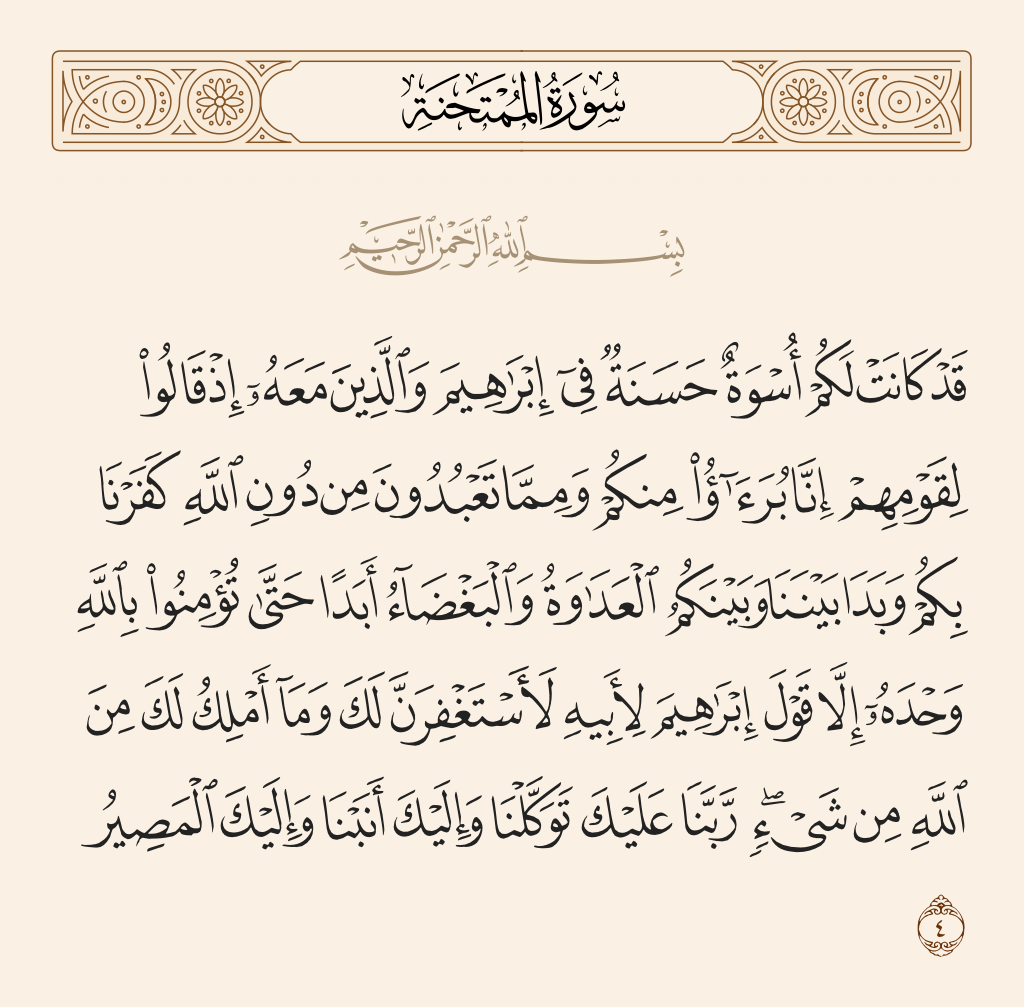 سُورَةُ الْمُمْتَحنَةِ
بِسْمِ ٱللَّهِ ٱلرَّحْمَٰنِ ٱلرَّحِيمِ
قَدْ كَانَتْ لَكُمْ أُسْوَةٌ حَسَنَةٌ فِىٓ إِبْرَٰهِيمَ وَٱلَّذِينَ مَعَهُۥٓ إِذْ قَالُوا۟
لِقَوْمِهِمْ إِنَّا بُرَءَٰٓؤُا۟ مِنكُمْ وَمِمَّا تَعْبُدُونَ مِن دُونِ ٱللَّهِ كَفَرْنَا
بِكُمْ وَبَدَا بَيْنَنَا وَبَيْنَكُمُ ٱلْعَدَٰوَةُ وَٱلْبَغْضَآءُ أَبَدًا حَتَّىٰ تُؤْمِنُوا۟ بِٱللَّهِ
وَحْدَهُۥٓ إِلَّا قَوْلَ إِبْرَٰهِيمَ لِأَبِيهِ لَأَسْتَغْفِرَنَّ لَكَ وَمَآ أَمْلِكُ لَكَ مِنَ
ٱللَّهِ مِن شَىْءٍۖ رَّبَّنَا عَلَيْكَ تَوَكَّلْنَا وَإِلَيْكَ أَنَبْنَا وَإِلَيْكَ ٱلْمَصِيرُ
٤